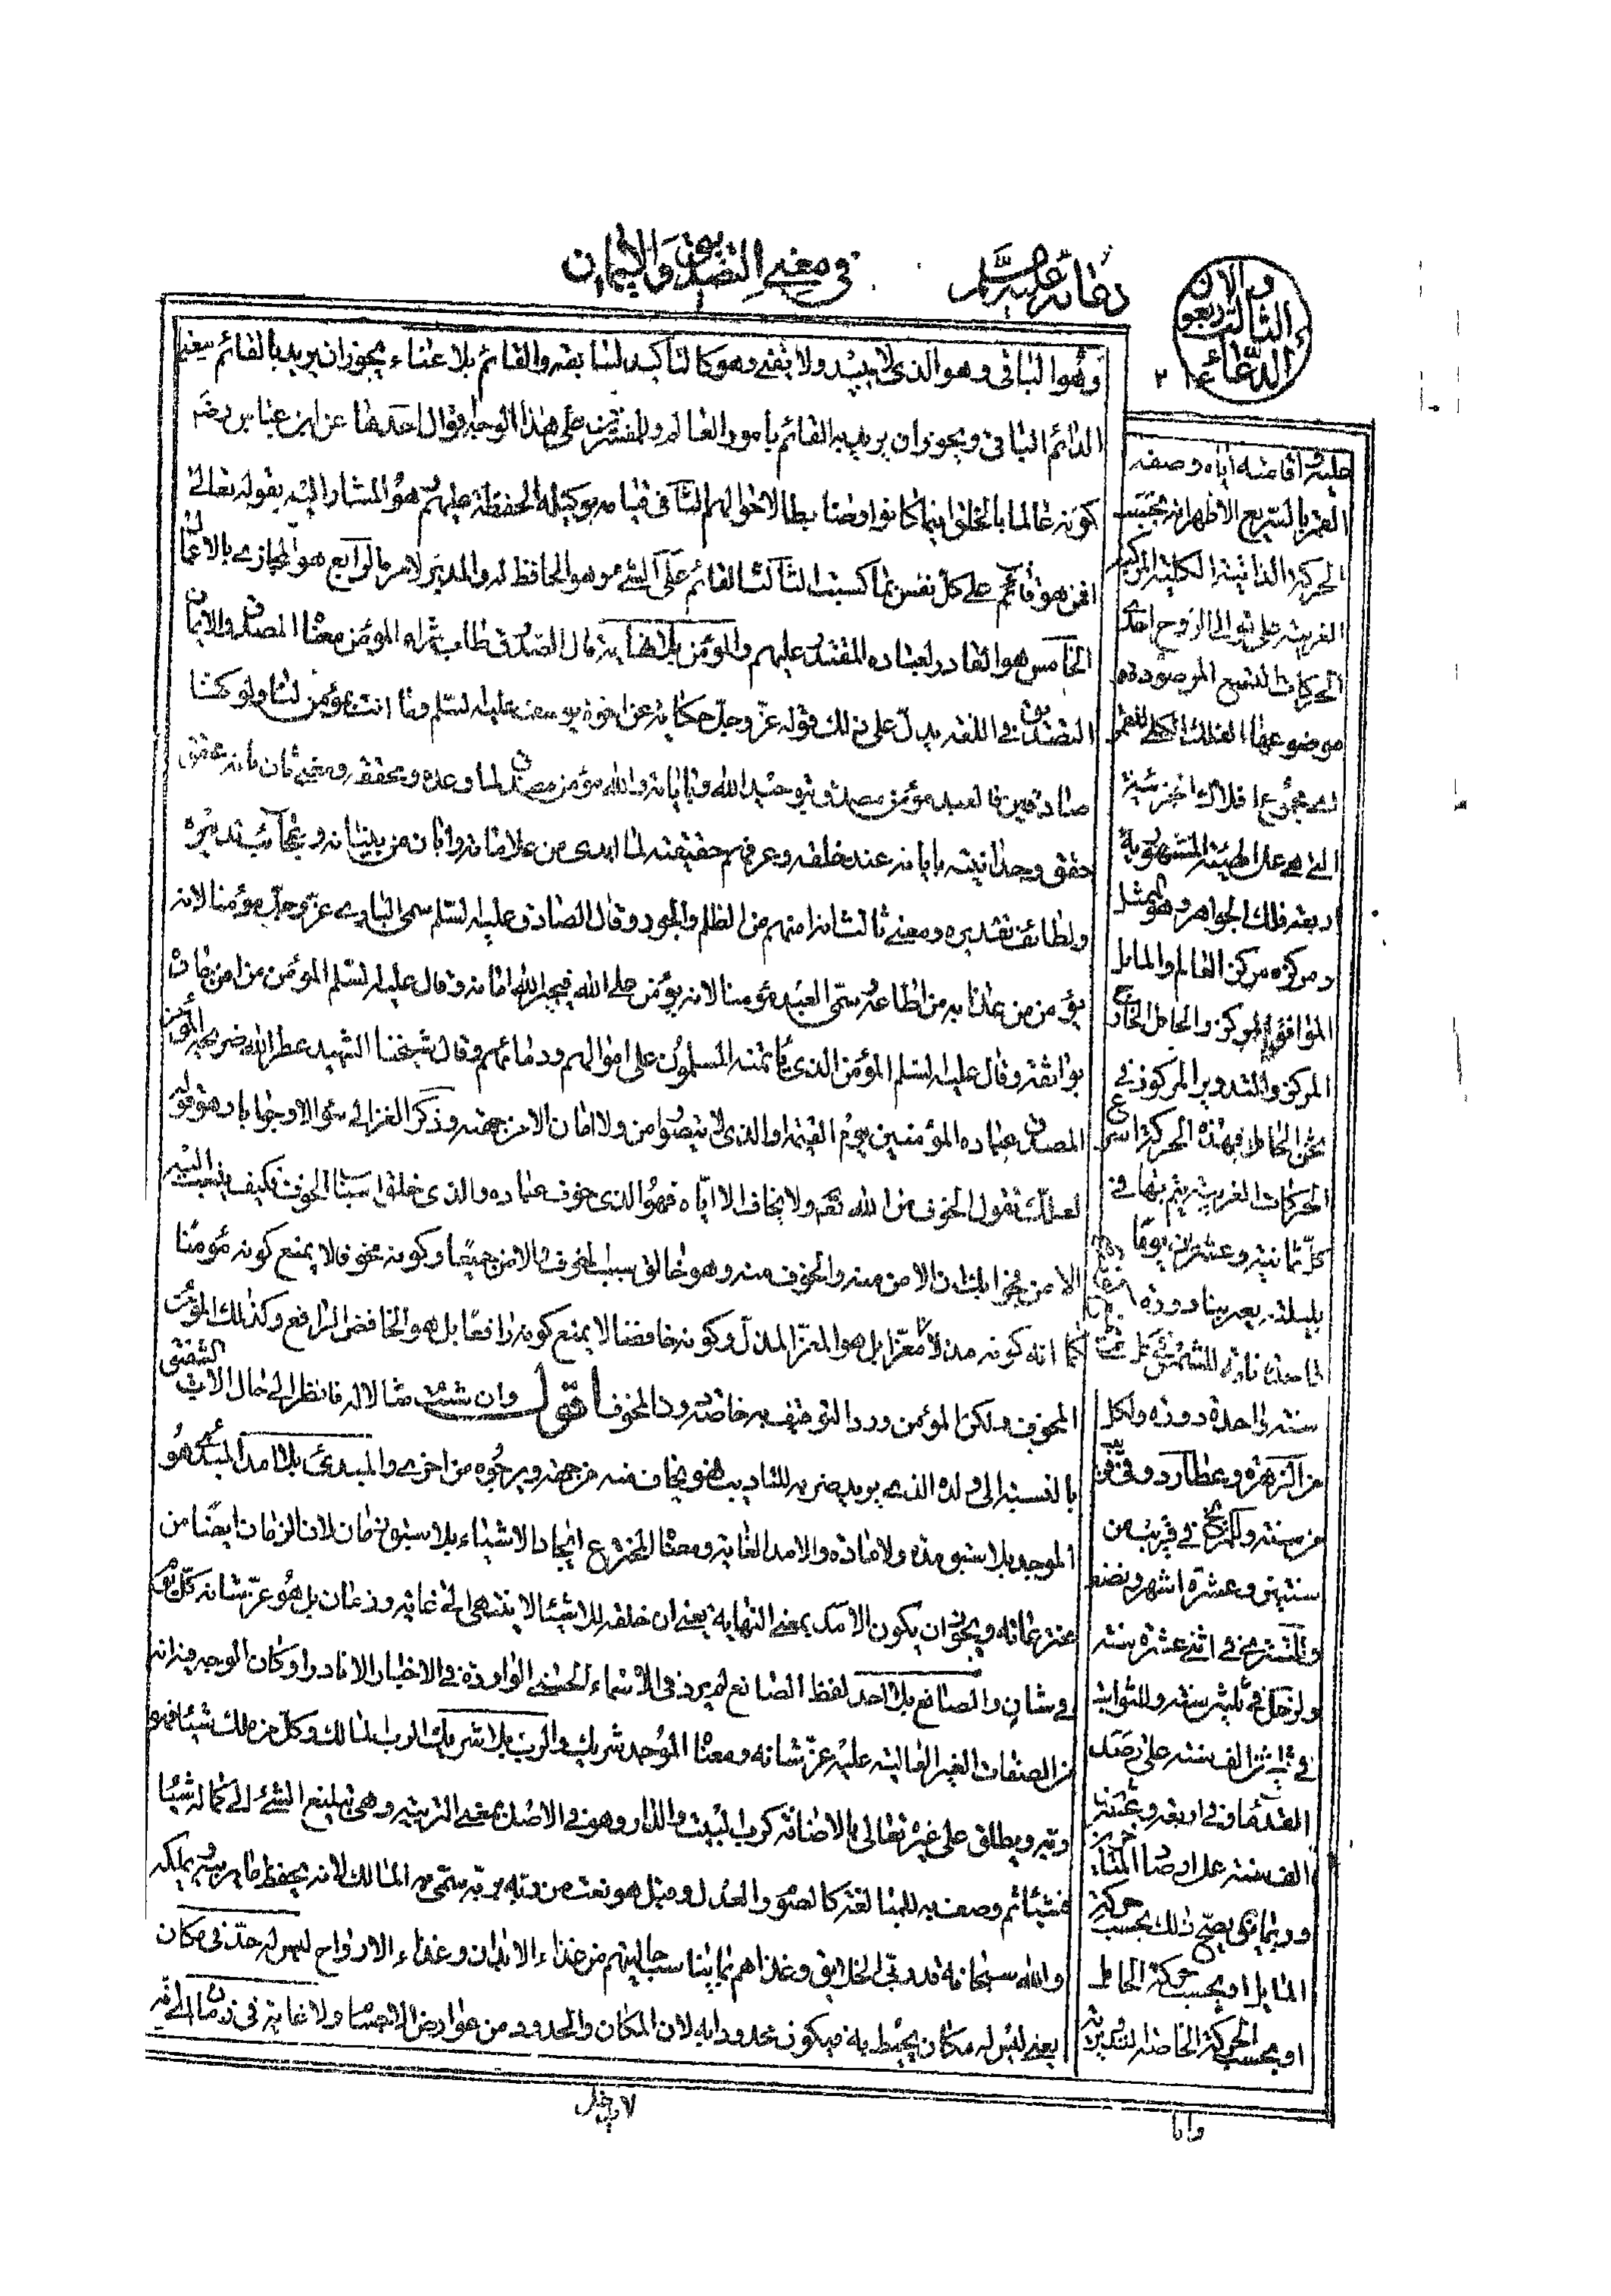 في معنى التصديق والايمان
دعائه عليه السلم
الدعاء الثالث والاربعون
وهو الباقي وهو الذي لا يبيد ولا يفنى وهو كالتاكيد لسابقه والقائم بلا عناء يجوز ان يريد بالقائم بمعنى
الدائم الباقي ويجوز ان يريد به القائم بامور العالم وللمفسرين على هذا الوجه اقوال احدها عن ابن عباس رضه
كونه عالما بالخلق اينما كانوا وضابطا لاحوالهم الثاني قيامه بوكيله الحفظة عليهم هو المشار اليه بقوله تعالى
افمن هو قائم على كل نفس بما كسبت الثالث القائم على الشيء هو الحافظ له والمدبر لامره الرابع هو المجازي بالاعمال
الخامس هو القادر لعباده المقتدر عليهم والمؤمن بلا نهاية قال الصدوق طاب ثراه المؤمن معناه المصدق والايمان
التصديق في اللغة يدل على ذلك قوله عز وجل حكاية عن اخوة يوسف عليه السلم وما انت بمؤمن لنا ولو كنا
صادقين فالعبد مؤمن مصدق بتوحيد الله وباياته والله مؤمن مصدق لما وعده ومحققه ومعنى ثان بانه محقق
حقق وحدانيته باياته عند خلقه وعرفهم حقيقته لما ابدى من علاماته وابان من بيناته وعجائب تدبيره
ولطائف تقديره ومعنى ثالث انه امنهم من الظلم والجور وقال الصادق عليه السلم سمي الباري عز وجل مؤمنا لانه
يؤمن من عذابه من اطاعه وسمي العبد مؤمنا لانه يؤمن على الله فيجيز الله امانه وقال عليه السلم المؤمن من امن جاره
بوائقه وقال عليه السلم المؤمن الذي ياتمنه المسلمون على اموالهم ودمائهم وقال شيخنا الشهيد عطر الله ضريحه المؤمن
المصدق عباده المؤمنين يوم القيمة او الذي لا يتصور امن ولا امان الا من جهته وذكر الغزالي سؤالا وجوابا وهو قوله
لعلك تقول الخوف من الله تعه ولا يخاف الا اياه فهو الذي خوف عباده والذي خلق اسباب الخوف فكيف ينسب اليه
الامن فجوابك ان الامن منه والخوف منه وهو خالق سبب الخوف والامن جميعا وكونه مخوفا لا يمنع كونه مؤمنا
كما انه كونه مذلا معزا بل هو المعز المذل وكونه خافضا لا يمنع كونه رافعا بل هو الخافض الرافع وكذلك المؤمن
المخوف ولكن المؤمن ورد التوقيف به خاصة دون المخوف اقول وان شئت مثالا له فانظر الى حال الاب الشفيق
بالنسبة الى ولده الذي يريد ضربه للتاديب فهو يخاف منه من جهة ويرجوه من اخرى والمبدئ بلا امد المبدئ هو
الموجد بلا سبق مدة ولا مادة والامد الغاية ومعناه المخترع ايجاد الاشياء بلا سبق زمان لان الزمان ايضا من
مخترعاته ويجوز ان يكون الامد بمعنى النهاية بمعنى ان خلقه للاشياء لا ينتهي الى غاية وزمان بل هو عز شانه كل يوم
في شان والصانع بلا احد لفظ الصانع لم يرد في الاسماء الحسنى الواردة في الاخبار الا نادرا وكان الوجه فيه انه
من الصفات الغير الغالبة عليه عز شانه ومعناه الموجد شريك والرب بلا شريك الرب المالك وكل من ملك شيئا فهو
ربه ويطلق على غيره تعالى بالاضافة كرب البيت والدار وهو في الاصل بمعنى التربية وهي تبليغ الشيء الى كماله شيئا
فشيئا ثم وصف به للمبالغة كالصوم والعدل وقيل هو نعت من ربه يربه سمي به المالك لانه يحفظ ما يربيه ويملكه
والله سبحانه قد ربى الخلايق وغذاهم بما يناسب حاليتهم من غذاء الابدان وغذاء الارواح ليس له حد في مكان
يعني ليس له مكان يحيط به فيكون محدودا به لان المكان والحدود من عوارض الاجسام ولا غاية في زمان
لا يخل
عليه افاضه اياه وصفه
القمر بالسريع الاظهر انه بحسب
الحركة الذاتية الكلية المركبة
الغربية على توالي البروج احدى
الحركات التسع المرصودة
موضوعها الفلك الكلي للقمر
اي مجموع افلاك الجزئية
التي هي على الهيئة المشهورة
اربعة فلك الجوزهر وهو ممثل
ومركزه مركز العالم والمايل
الموافق المركز والحامل الخارج
المركز والتدوير المركوز في
ثخن الحامل فبهذه الحركة اسرع
الحركات الغربية يتم بها في
كل ثمانية وعشرين يوما
بليلته تقريبا دورة
سنة واحدة دورة ولكل
من الزهرة وعطارد وفي قريب
من سنة وللمريخ في قريب من
سنتين وعشرة اشهر ونصف
وللمشتري في اثنى عشرة سنة
ولزحل في ثلثين سنة وللثوابت
القدماء وفي اربعة وعشرين
الف سنة على ارصاد
وربما يصح ذلك بحسب حركة
المايل او بحسب حركة الحامل
او بحسب الحركة الخاصة التدويرية
واما